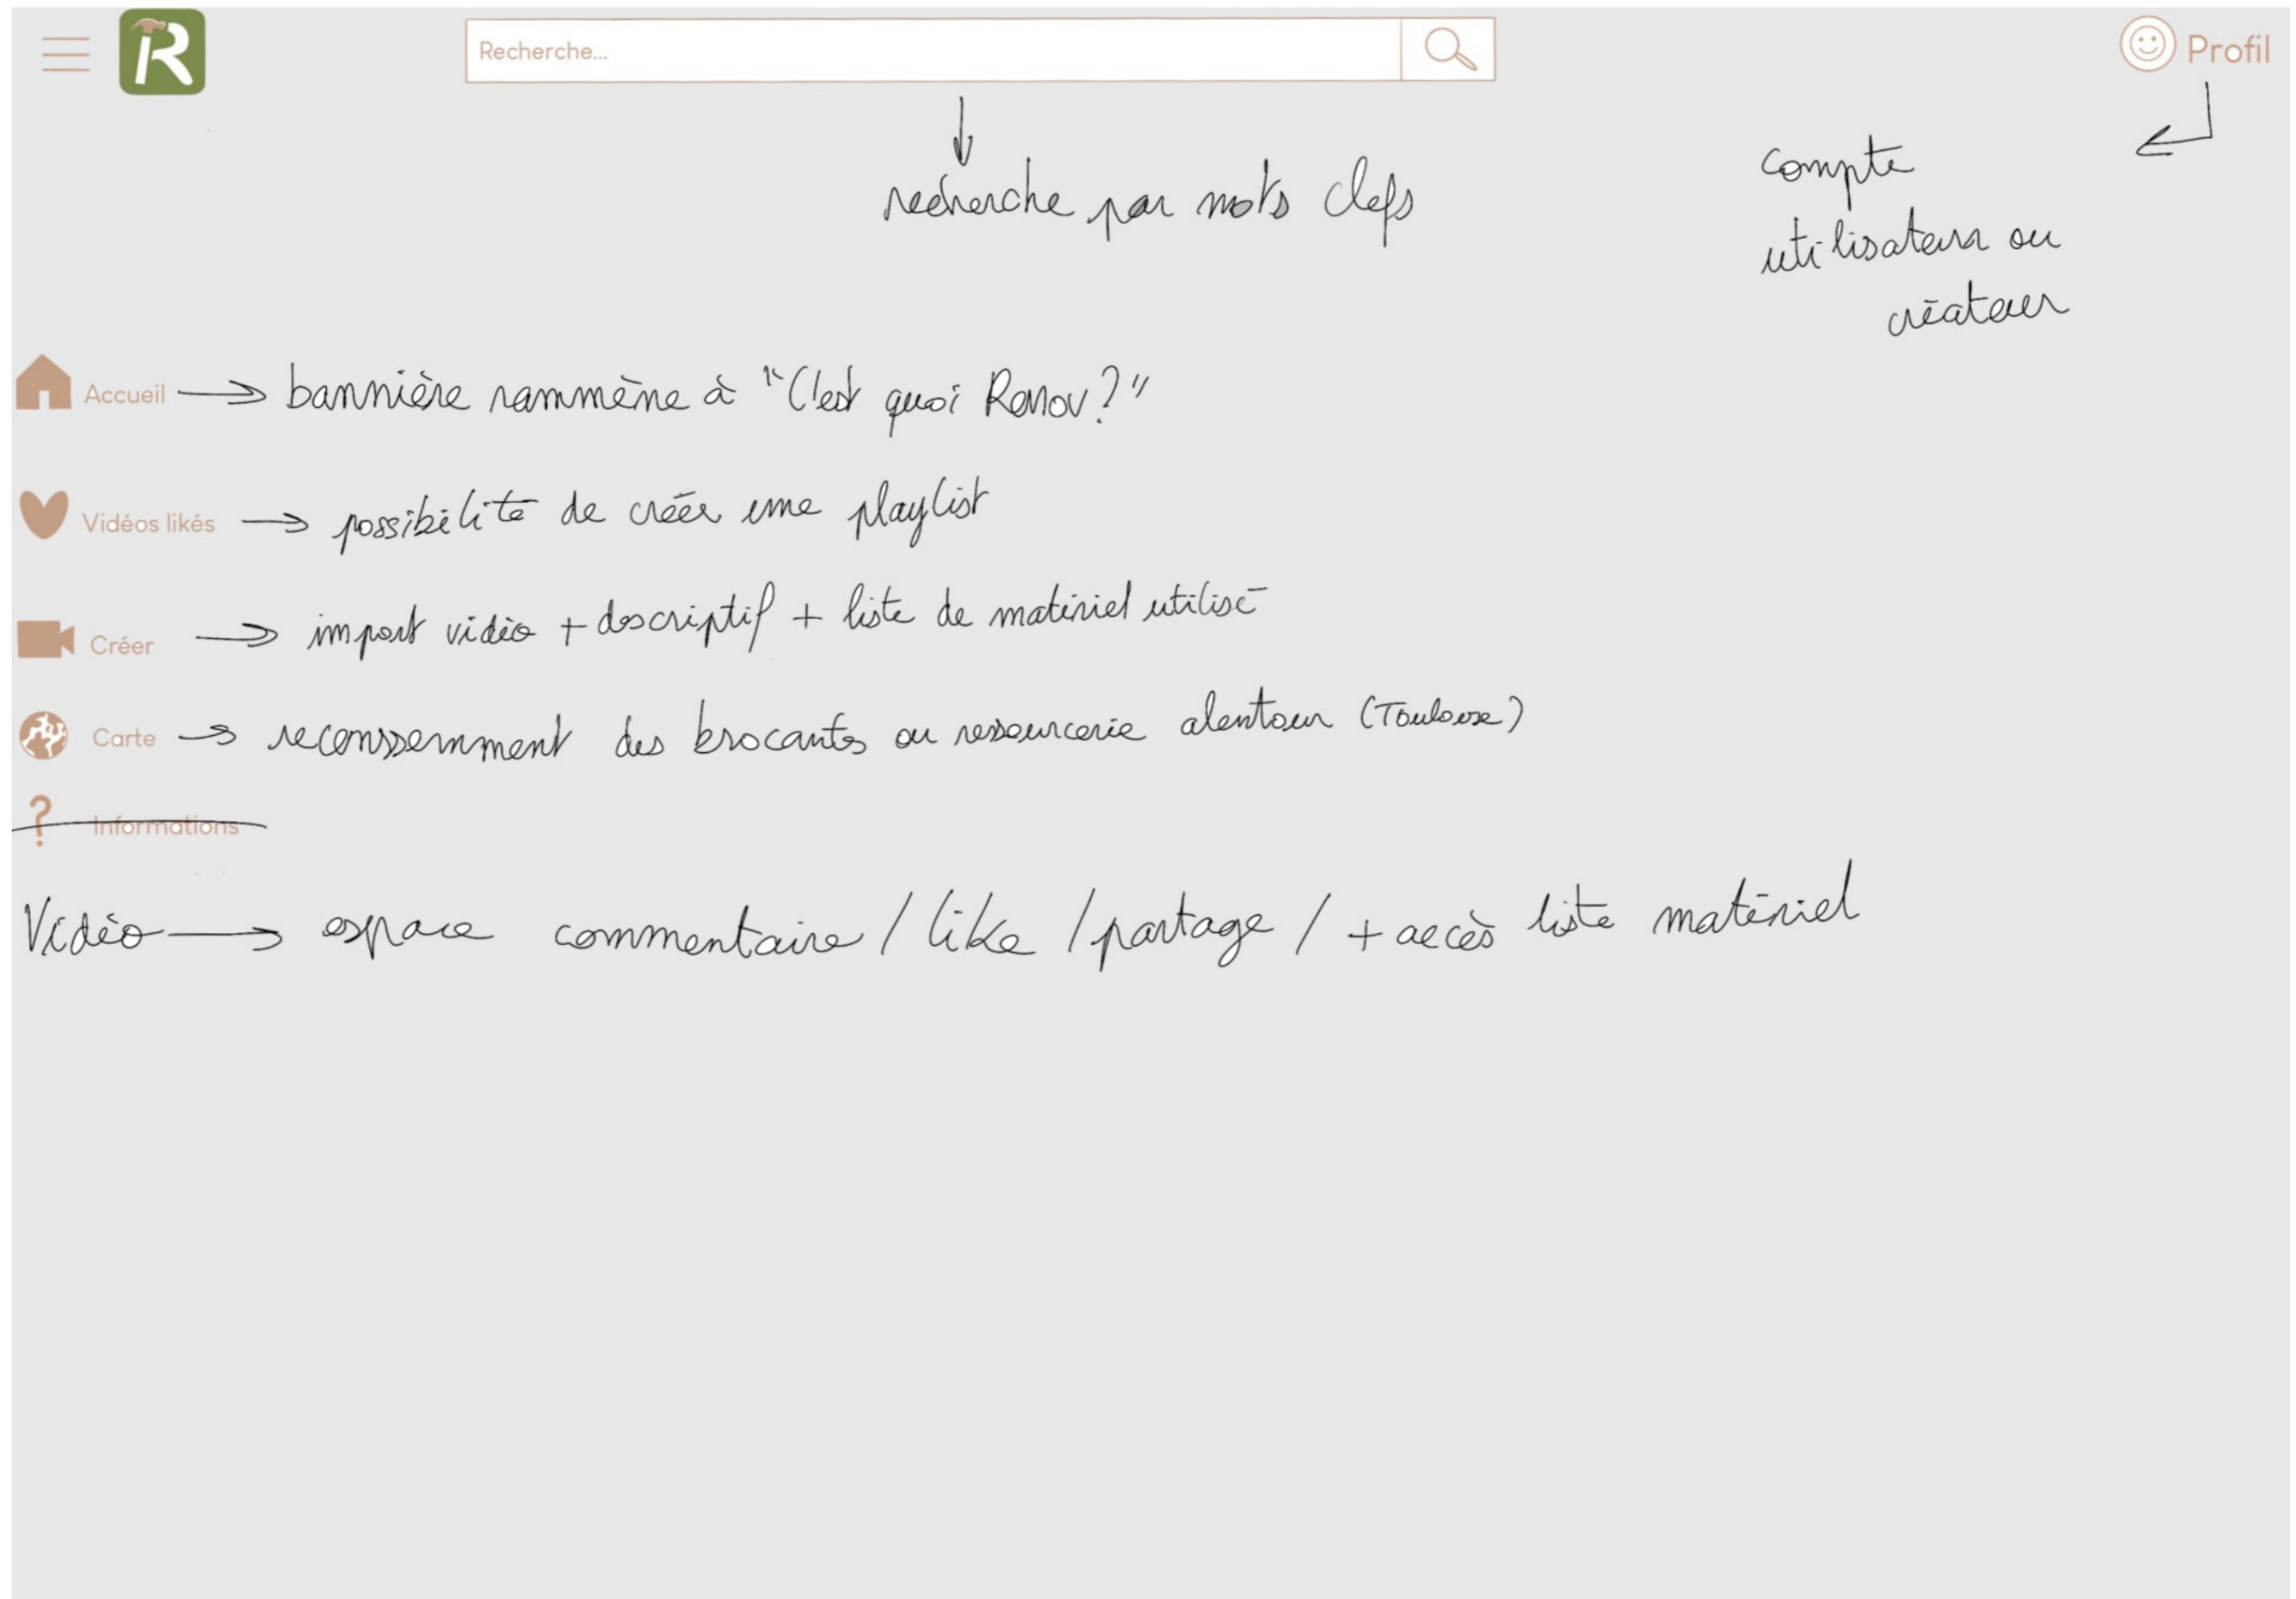 R
Recherche...
Profil
recherche par mots clefs
compte
utilisateur ou
créateur
Accueil → bannière rammène à "C'est quoi Renov?"
Vidéos likés → possibilité de créer une playlist
Créer → import vidéo + descriptif + liste de matériel utilisé
Carte → recenssemment des brocantes ou ressourcerie alentour (Toulouse)
? Informations
Vidéo → espace commentaire / like / partage / + accès liste matériel